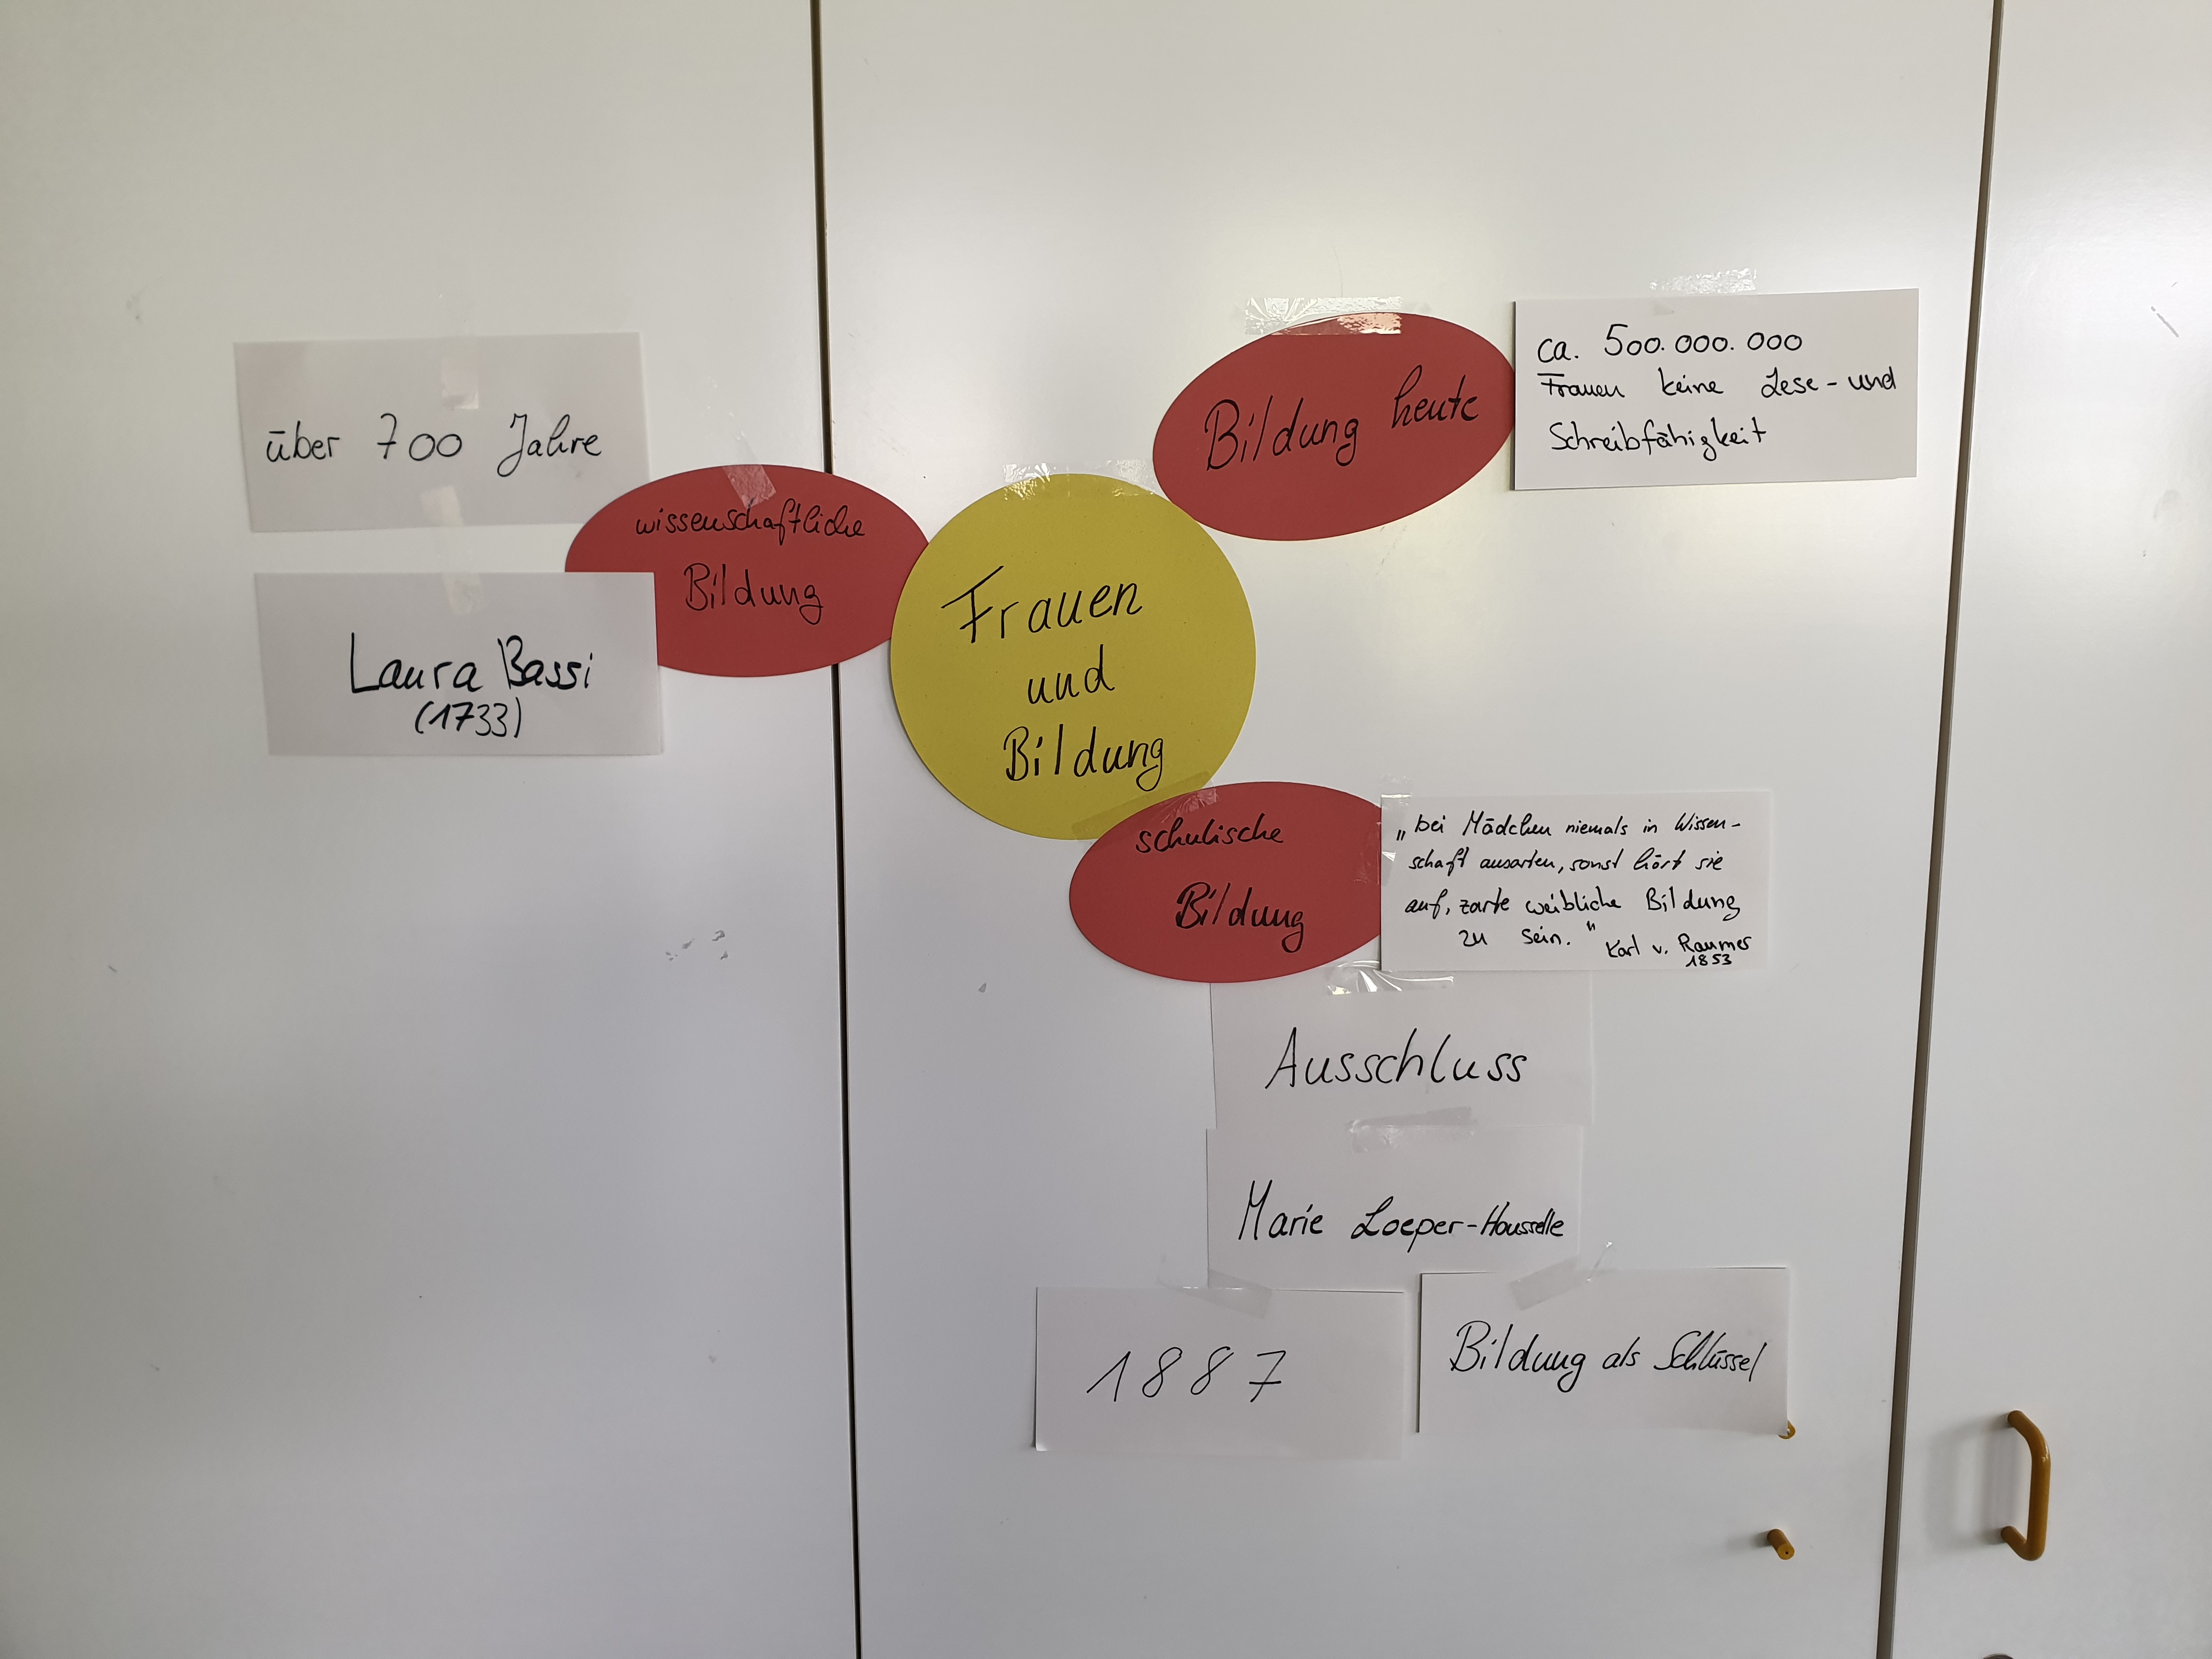 über 700 Jahre
wissenschaftliche
Bildung
Laura Bassi
(1733)
Frauen
und
Bildung
Bildung heute
ca. 500.000.000
Frauen keine Lese- und
Schreibfähigkeit
schulische
Bildung
„bei Mädchen niemals in Wissen-
schaft ausarten, sonst hört sie
auf, zarte weibliche Bildung
zu sein."
Karl v. Raumer
1853
Ausschluss
Marie Loeper-Housselle
1887
Bildung als Schlüssel